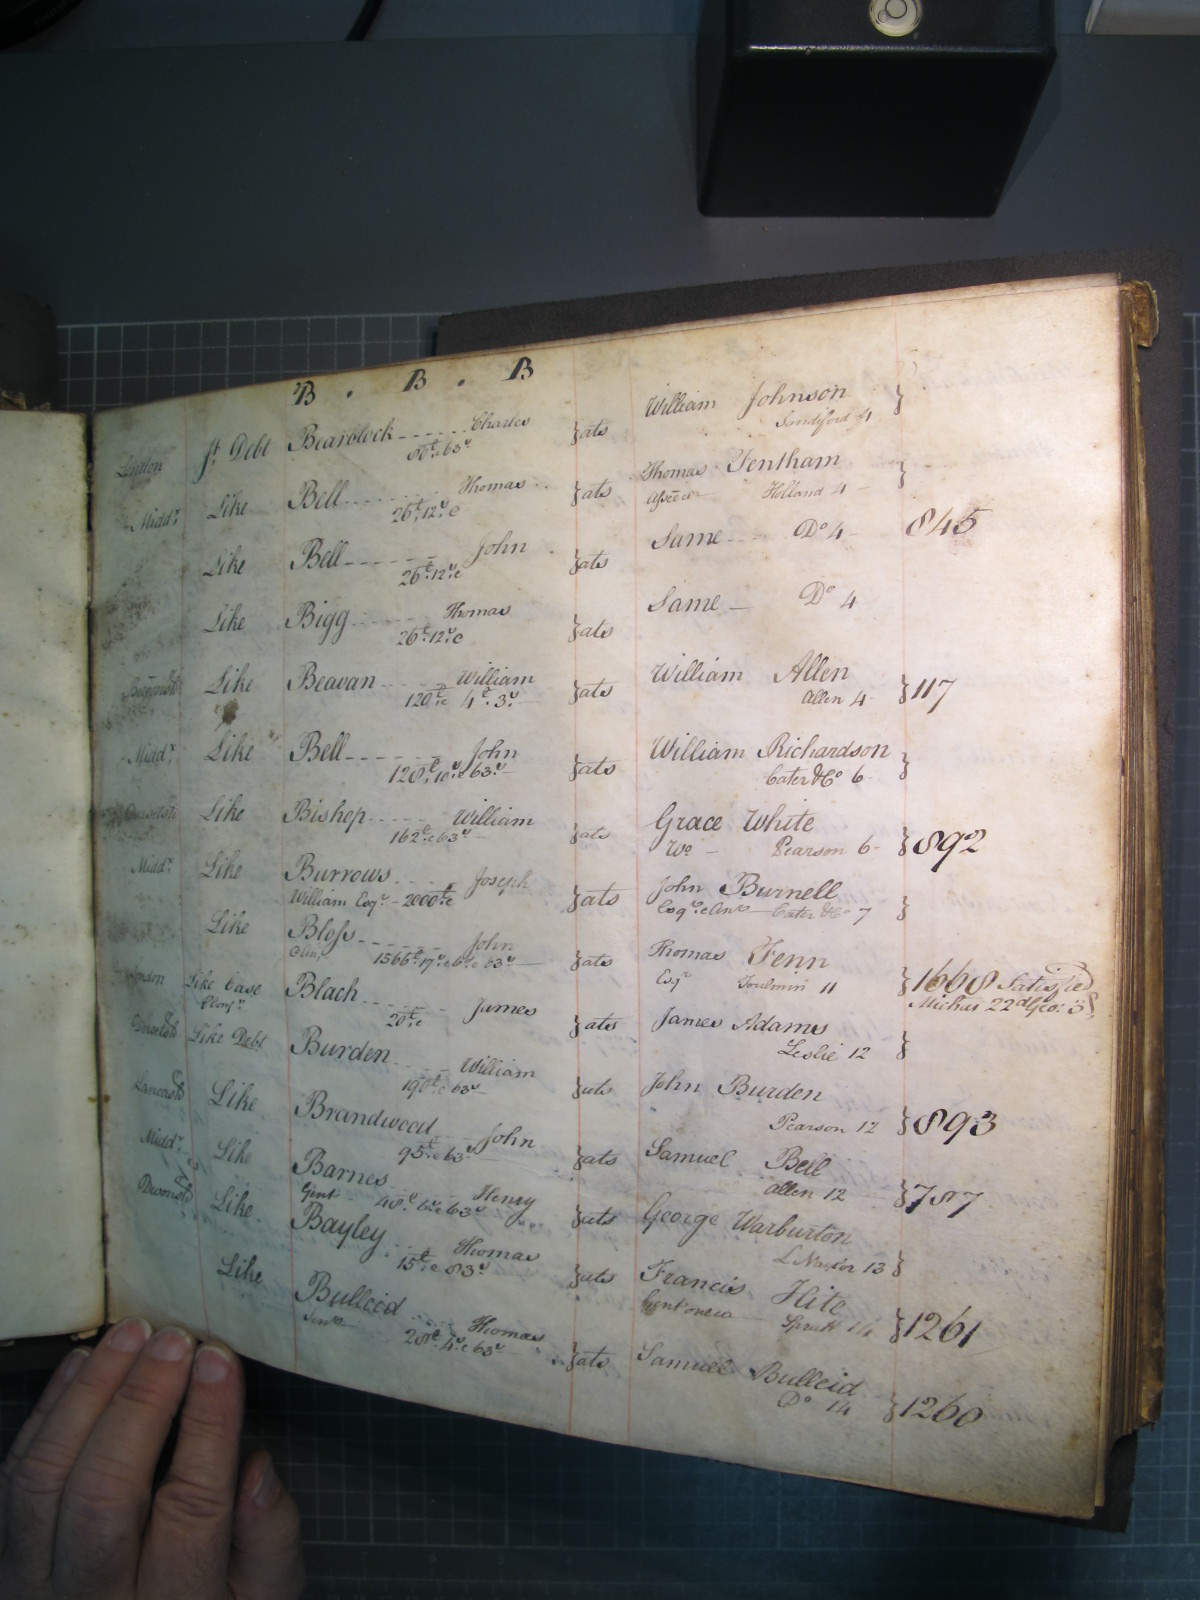 B . B . B
London Jt Debt Bearblock Charles 80£ & 63s }ats William Johnson Sandiford 4 }
Middx Like Bell Thomas 26£.12s.& }ats Thomas Tentham Holland 4 }
Like Bell John 26£.12s.& }ats Same Do 4 845
Like Bigg Thomas 26£.12s.& }ats Same Do 4
Like Beavan William 120£ & 4£.3s. }ats William Allen Allen 4 }117
Middx Like Bell John 128£.10s.& 63s }ats William Richardson Cater & Co 6 }
Like Bishop William 162£ & 63s }ats Grace White Wo Pearson 6 }892
Middx Like Burrows Joseph
William Esqr 2000£ & }ats John Burnell
Esqr Cater & Co 7 }
Like Bloss John
1566£.17s. & 63s }ats Thomas Fenn
Esqr Toulmin 11 }1668 Satisfied
Michas 22d Geo: 3d
London Like Case Blach James 20£ & }ats James Adams
Leslie 12 }
Like Debt Burden William 190£ & 63s }ats John Burden
Pearson 12 }893
Lancash Like Brandwood John 95£ & 63s }ats Samuel Bell
Allen 12 }787
Middx Like Barnes Henry
Gent 40£.6s.& 63s }ats George Warburton
13 }
Devonsh Like Bayley Thomas 15£ & 83s }ats Francis Hite
14 }1261
Like Bulleid Thomas
28£.4s.& 63s }ats Samuel Bulleid
Do 14 }1260